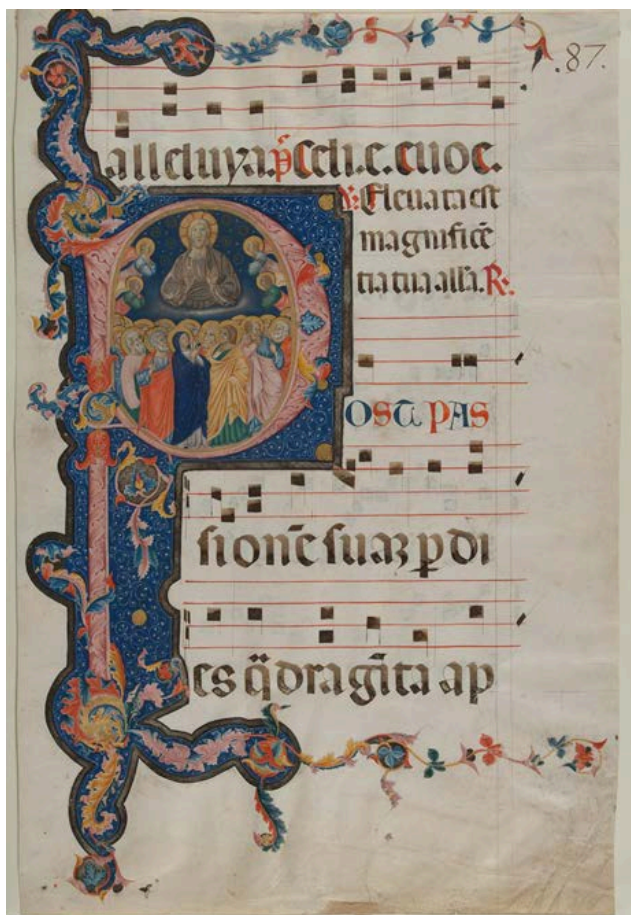 .87.
alleluya. p̄s Celi. e. euoe.
℣. Eleuata est
magnificē
tia tua alla. ℟.
P
OST PAS
sionē suaꝫ ꝑ di
es q̄dragīta ap